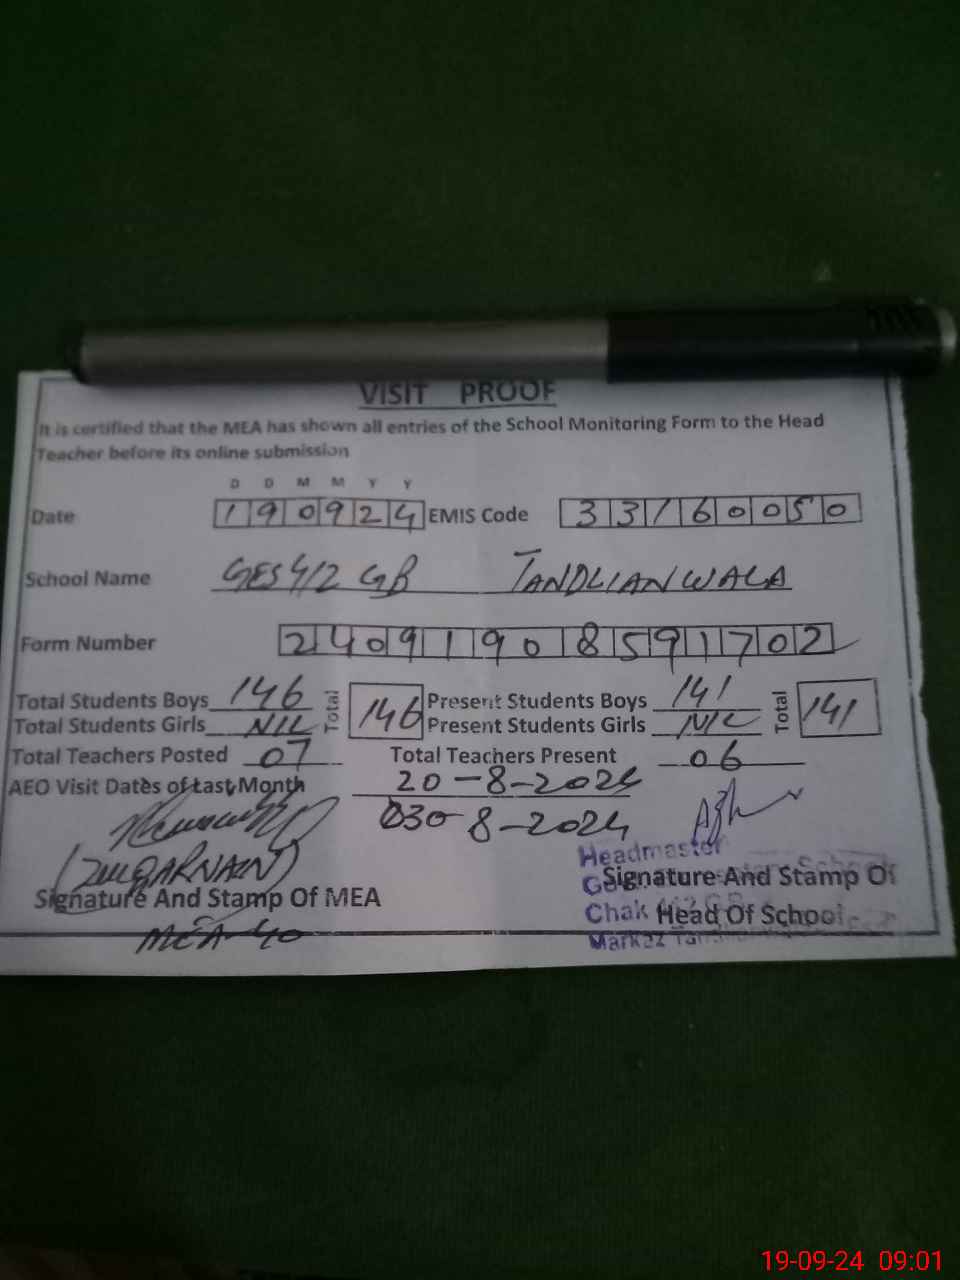 VISIT PROOF
It is certified that the MEA has shown all entries of the School Monitoring Form to the Head
Teacher before its online submission
D D M M Y Y
Date 190924 EMIS Code 33160050
School Name GES 412 GB TANDLIANWALA
Form Number 24091908591702
Total Students Boys 146 Total 146 Present Students Boys 141 Total 141
Total Students Girls NIL Present Students Girls NIL
Total Teachers Posted 07 Total Teachers Present 06
AEO Visit Dates of Last Month 20-8-2024
30-8-2024
(ZULQARNAIN)
Headmaster
Signature And Stamp Of MEA
Signature And Stamp Of
Chak
Head Of School
MEA-40
Markaz
19-09-24 09:01